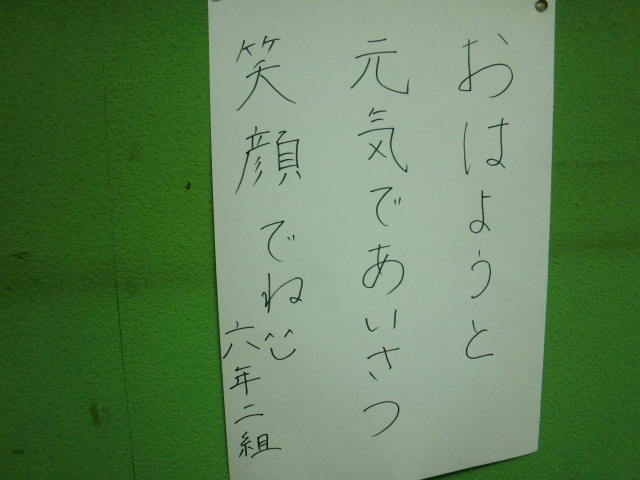 おはようと
元気であいさつ
笑顔でね
六年二組